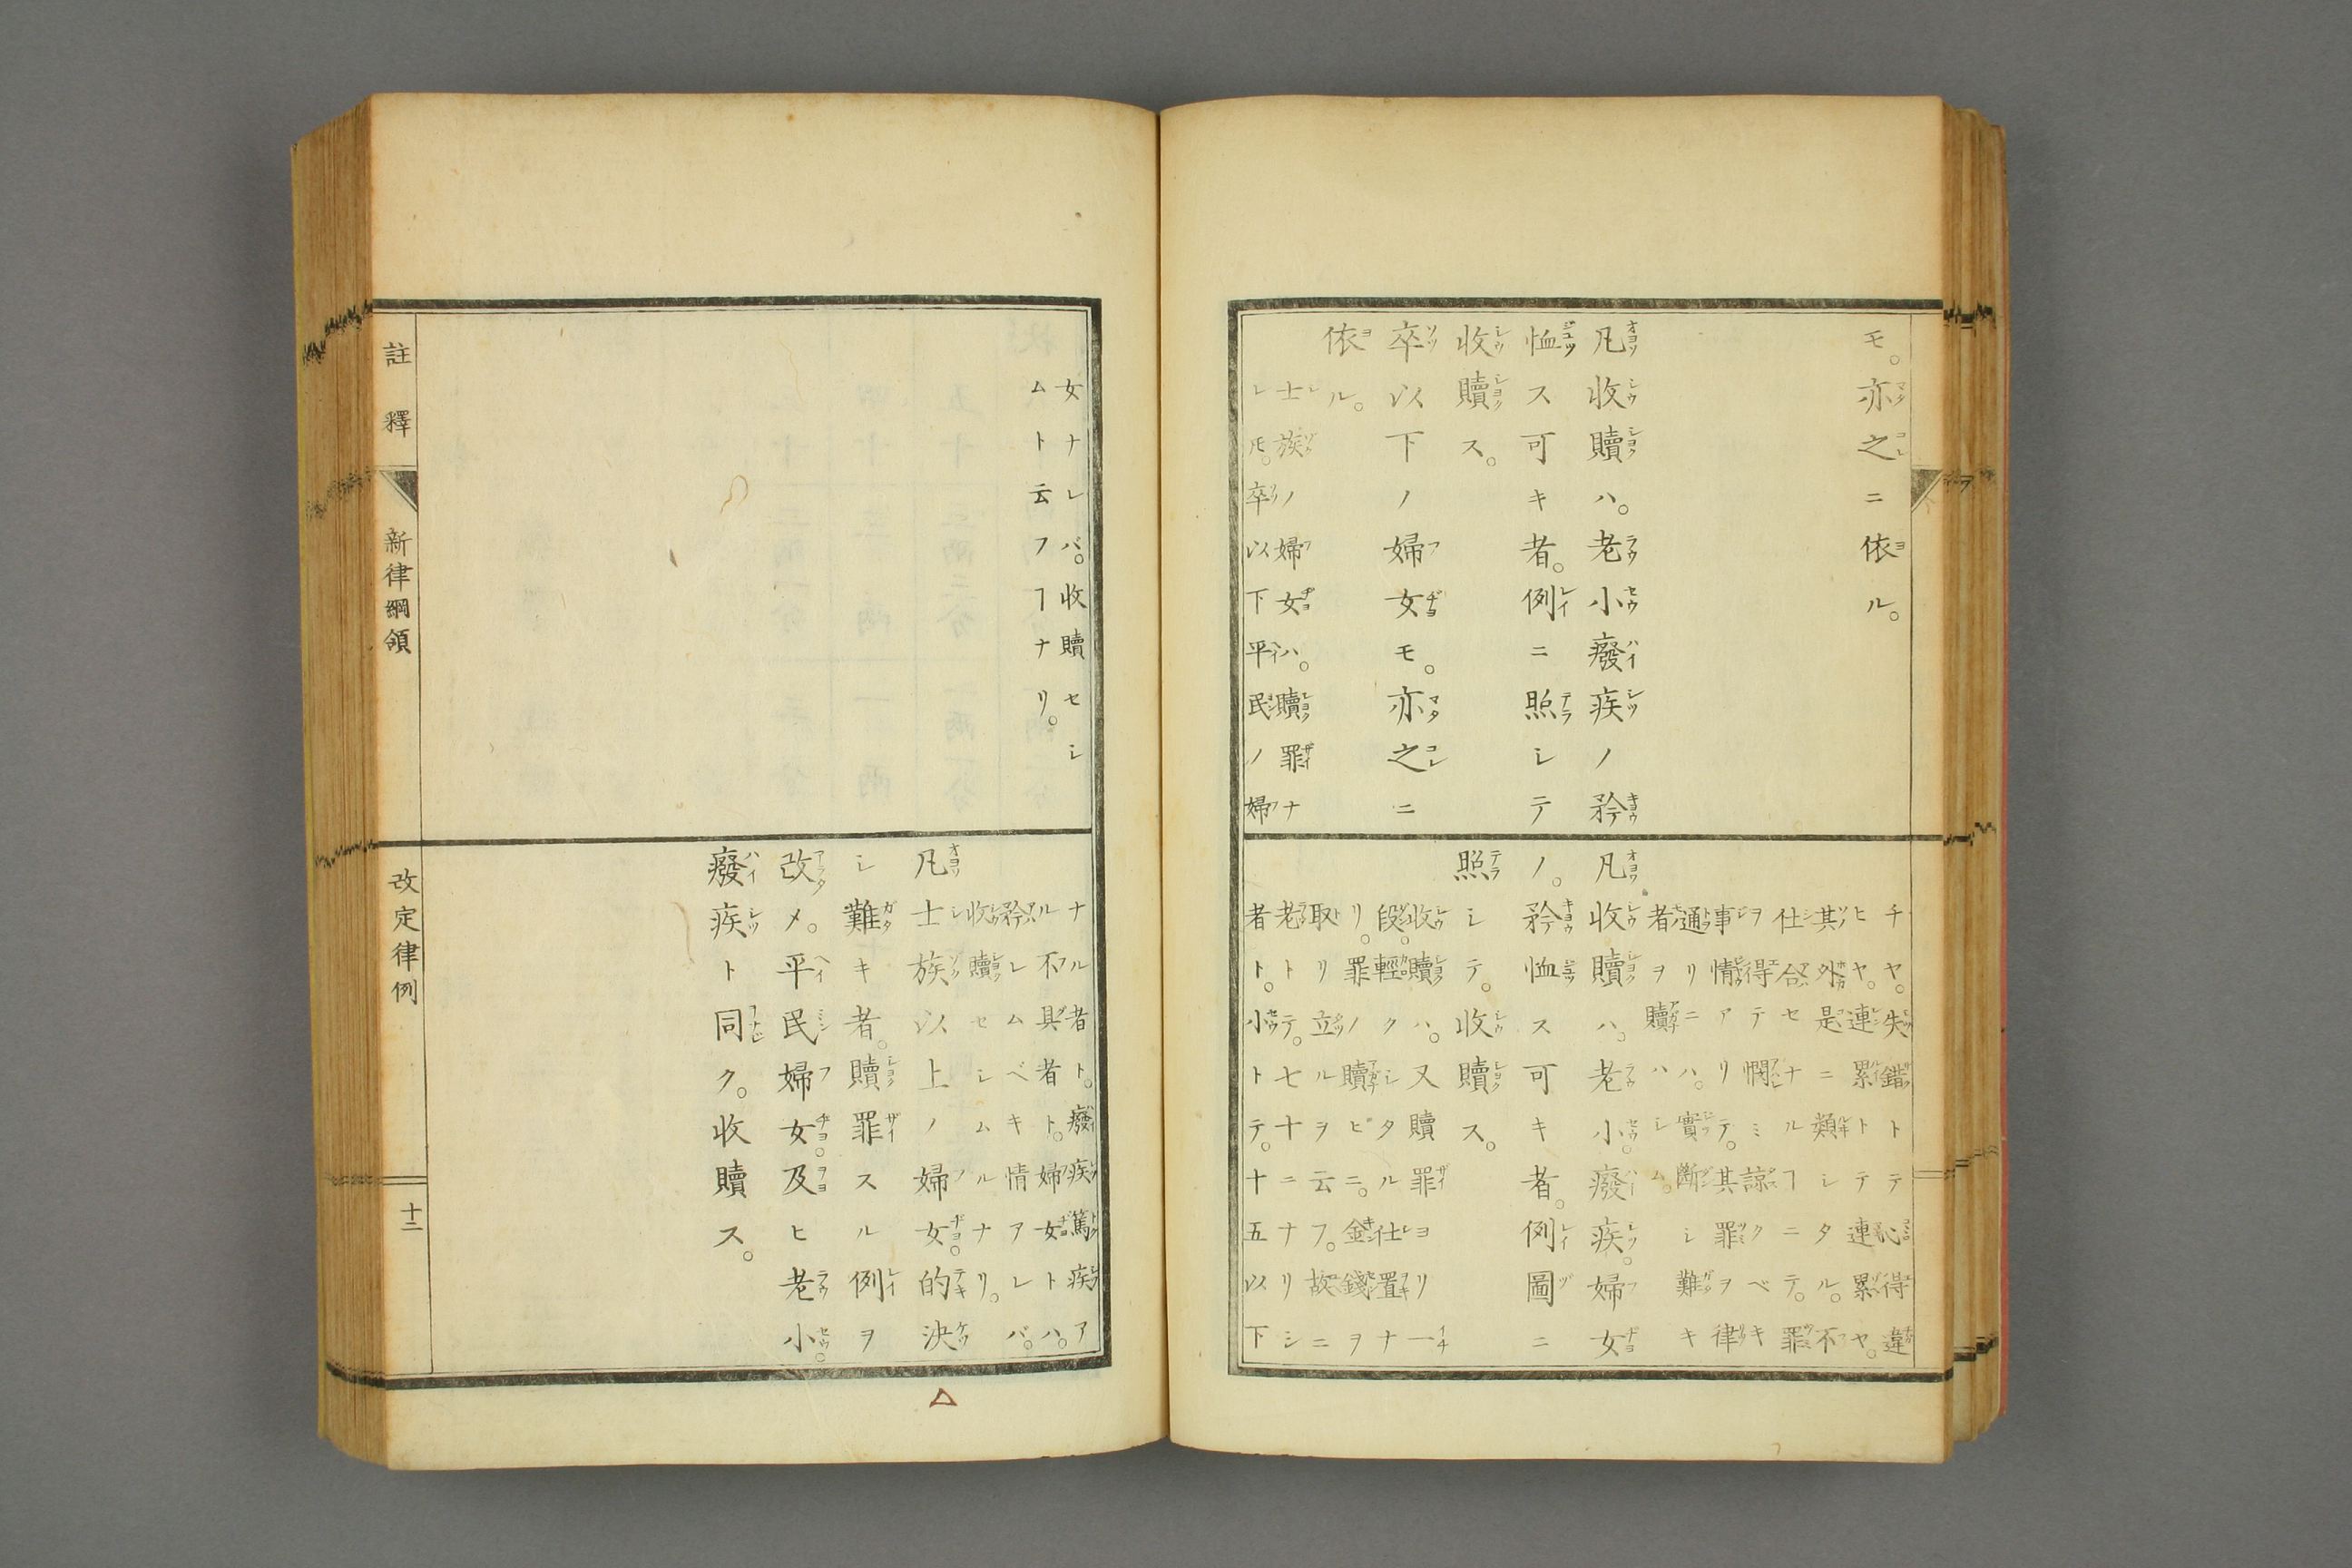 モ。亦之ニ依ル。
凡收贖ハ。老小癈疾ノ矜
恤ス可キ者。例ニ照シテ
收贖ス。
卒以下ノ婦女モ。亦之ニ
依ル。
士族ノ婦女ハ。贖罪ナ
レ𪜈。卒以下平民ノ婦
チヤ。失錯トテ心得違
ヒヤ。連累トテ連累ヤ。
其外是ニ類シタル。不
仕合セナルヿニテ。罪
ヲ得テ憫ミ諒クベキ
事情アリテ。其罪ヲ律
通リニハ。實斷シ難キ
者ヲ贖ハシム。
凡收贖ハ。老小。癈疾。婦女
ノ。矜恤ス可キ者。例圖ニ
照シテ。收贖ス。
收贖ハ。又贖罪ヨリ一
段。輕クシタル仕置ナ
リ。罪ノ贖ヒニ。金錢ヲ
取リ立ルヲ云フ。故ニ
老トテ。七十ニナリシ
者ト。小トテ。十五以下
女ナレバ。收贖セシ
ムト云フヿナリ。
ナル者ト。癈疾篤疾ア
ル不具者ト。婦女トハ。
矜レムベキ情アレバ。
收贖セシムルナリ。
凡士族以上ノ婦女。的決
シ難キ者。贖罪スル例ヲ
改メ。平民婦女。及ヒ老小。
癈疾ト同ク。收贖ス。
註釋 新律綱領 改定律例 十二